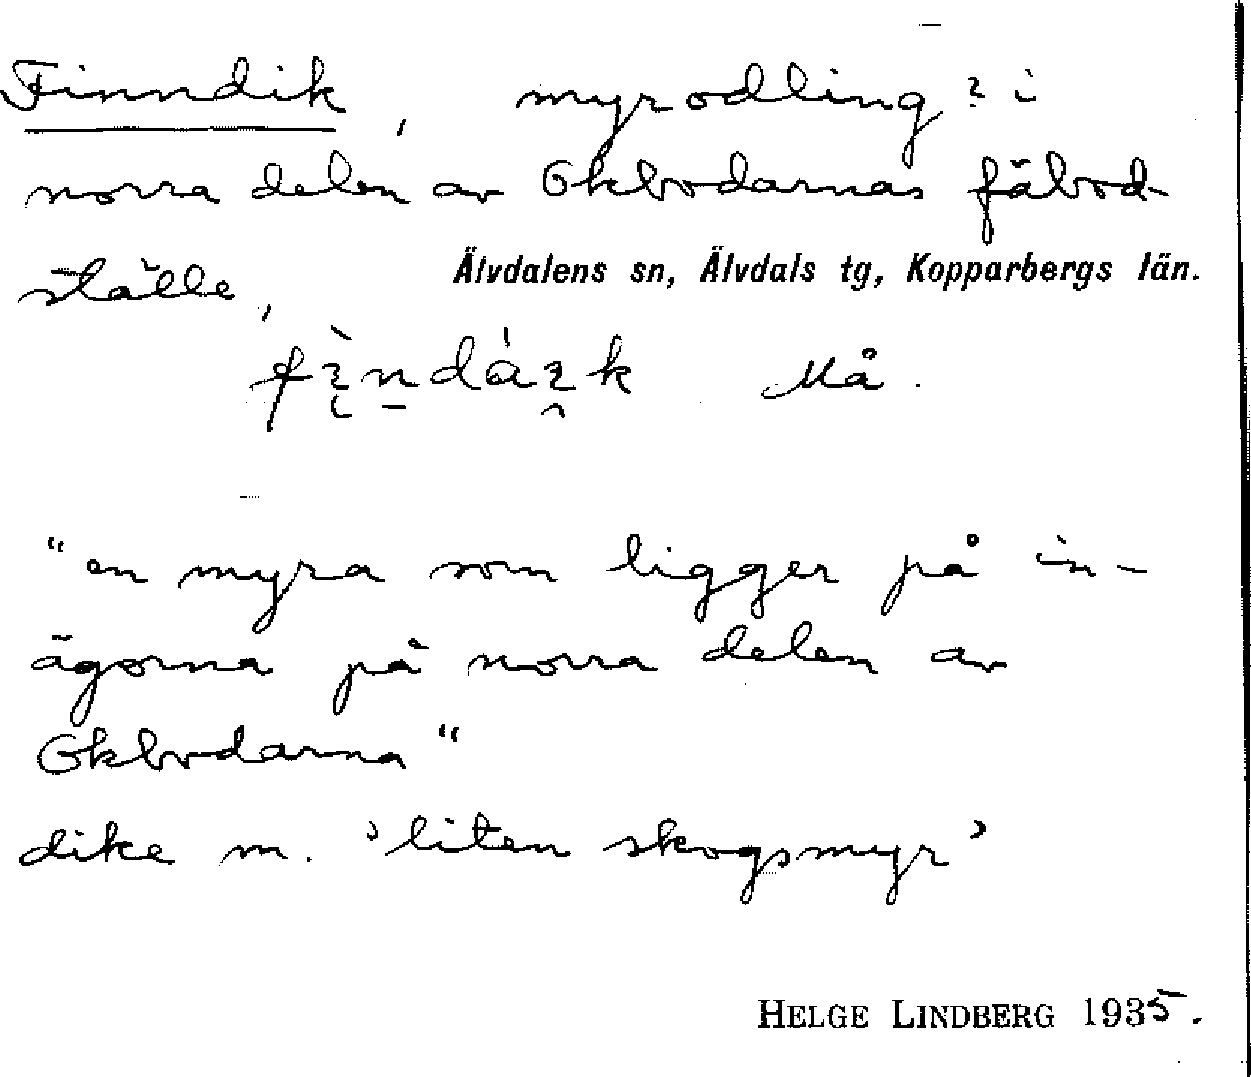 Finndik, myrodling? i
norra delen av Gkbodarnas fäbod-
ställe,
Älvdalens sn, Älvdals tg, Kopparbergs län.
Må.
"en myra som ligger på in-
ägorna på norra delen av
Gkbodarna"
dike m. 'liten skogsmyr'
HELGE LINDBERG 1935.